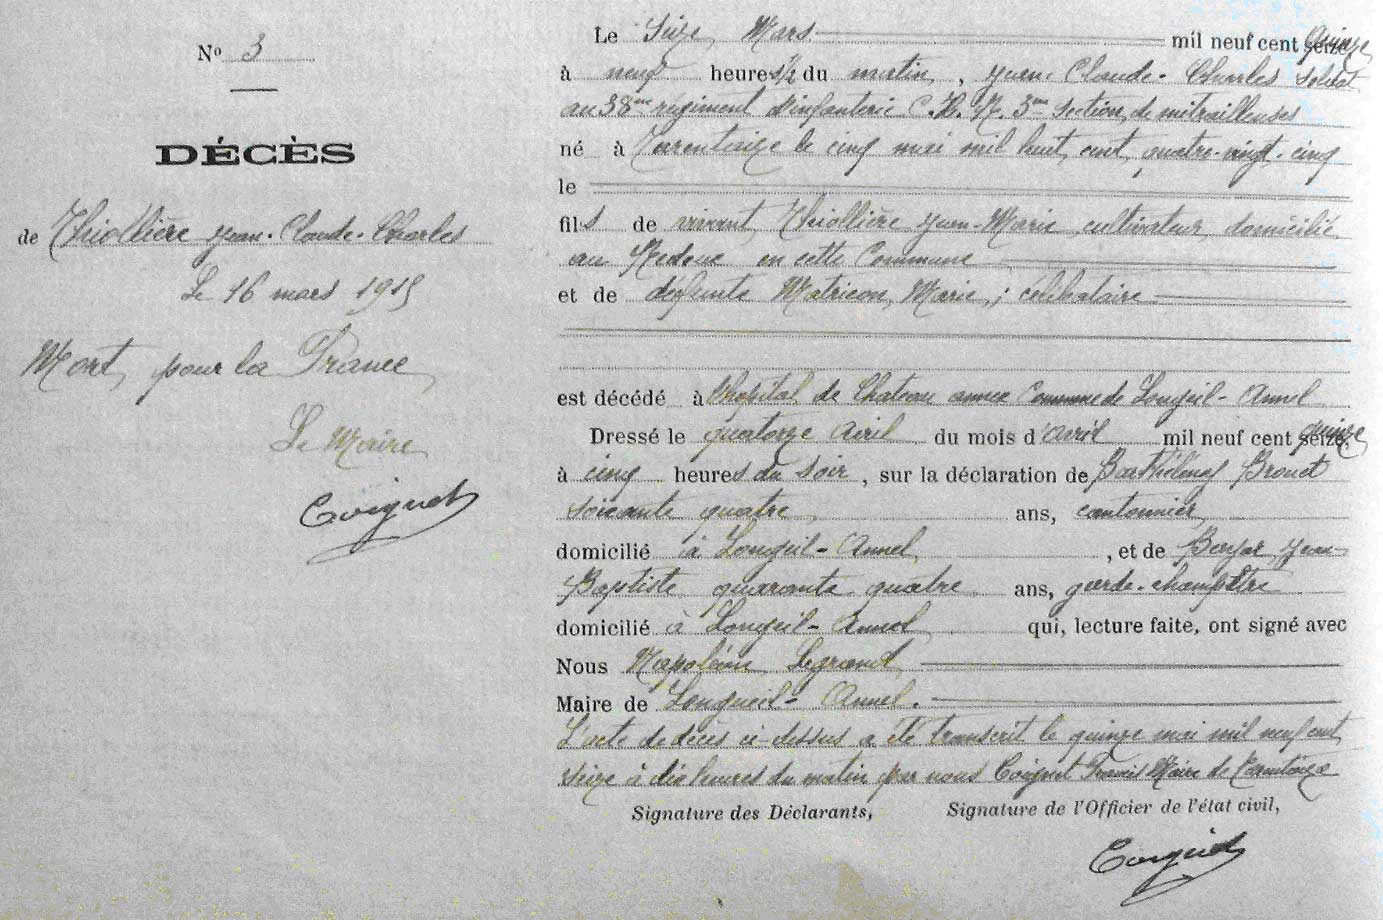 N° 3
DÉCÈS
de Thiollière Jean-Claude-Charles
Le 16 mars 1915
Mort pour la France
Le Maire
Coignet
Le Seize Mars mil neuf cent seize quinze
à neuf heures 1/2 du matin, Jean-Claude-Charles soldat
au 38me régiment d'infanterie C.H.R. 3me section de mitrailleuses
né à Tarentaize le cinq mai mil huit cent quatre-vingt-cinq
le
fils de vivant Thiollière Jean-Marie cultivateur domicilié
au en cette Commune
et de défunte Matricon Marie; célibataire
est décédé à l'hopital de Chateau annex Commune de Longueil-Annel
Dressé le quatorze Avril du mois d'avril mil neuf cent seize quinze
à cinq heures du soir, sur la déclaration de Barthélemy Brouet
soixante quatre ans, cantonnier
domicilié à Longueil-Annel, et de Jean-
Baptiste quarante quatre ans, garde-champêtre
domicilié à Longueil-Annel qui, lecture faite, ont signé avec
Nous Napoléon Legrand
Maire de Longueil-Annel.
L'acte de décès ci-dessus a été transcrit le quinze mai mil neuf cent
seize à dix heures du matin par nous Coignet Francis Maire de Tarentaize
Signature des Déclarants, Signature de l'Officier de l'état civil,
Coignet